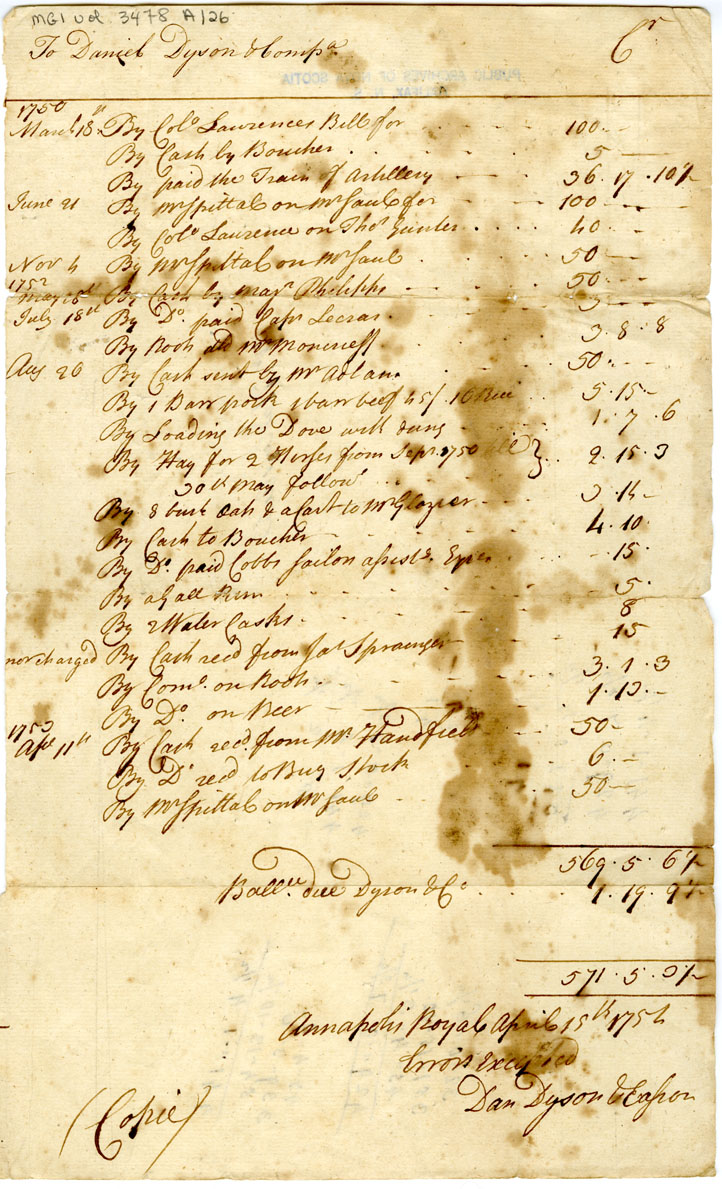 MG1 vol. 3478 A/26
To Daniel Dyson & Compa Cr
PUBLIC ARCHIVES OF NOVA SCOTIA
HALIFAX, N. S.
1750
March 18th By Colo Lawrences Bill for 100 " -
By Cash by Boucher 5 -
By paid the Train of Artillery 36 . 17 . 10½
June 21 By Mr Spittal on Mr Saul for 100 -
By Colo Laurence on Thos 40 . -
Nov 4 By Mr Spittal on Mr Saul 50 -
1752
May By Cash by Mayr Philipps 50 . -
July 18th By Do paid Capn 5 -
By Rooh 3 . 8 . 8
Aug 26 By Cash sent by Mr Adlam 50 -
By 1 Barr pork 1 barr beef 45/ 5 . 15 -
By Loading the Dove with 1 . 7 . 6
By Hay for 2 Horses from Sepr 1750 till } 2 . 15 . 3
30th May follow
By 8 bush Oats & a Cart to Mr Glozier 3 . 14 -
By Cash to Boucher 4 . 10
By Do paid Cobbs 15 .
By a Gall Rum 5 .
By 2 Water Casks 8
not charged By Cash recd from Jas Sprainger 15
By Coms on Rooh 3 . 1 . 3
By Do on Beer 1 . 13 . -
1753
Apr 11th By Cash recd from Mr Handfield 50 -
By Do recd to Buy Stock 6 . -
By Mr Spittal on Mr Saul 50 -
569 . 5 . 6½
Ballce due Dyson & Co 1 . 19 . 9½
571 . 5 . 3½
Annapolis Royal April 15th 1754
Errors excepted
Dan Dyson & Easson
(Copie)